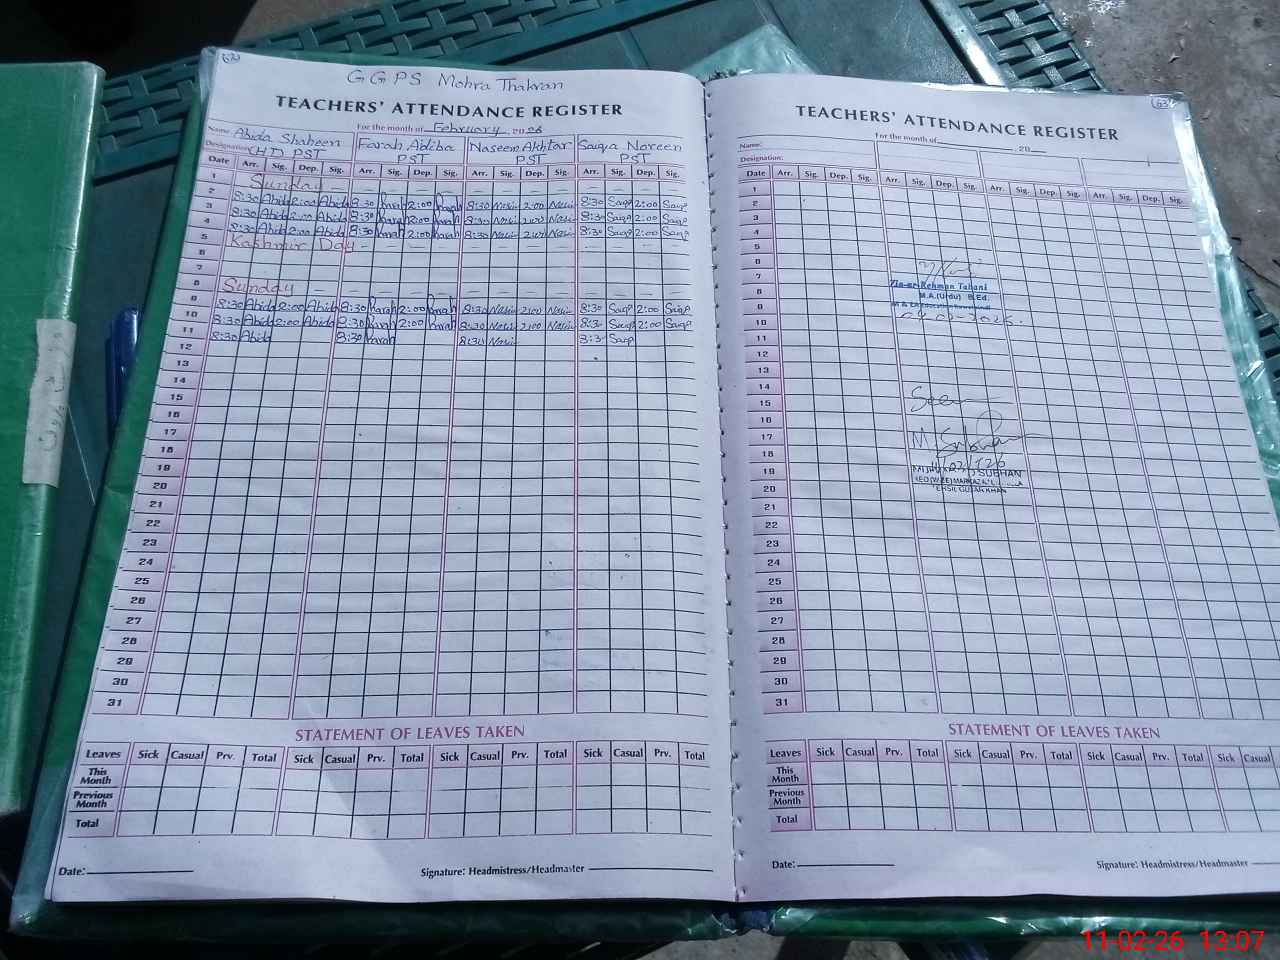 62
G G P S Mohra Thakran
TEACHERS' ATTENDANCE REGISTER
For the month of February, 2026
Name Abida Shaheen Farah Adiba Naseem Akhtar Saiqa Noreen
Designation (HT) PST PST PST PST
Date Arr. Sig. Dep. Sig. Arr. Sig. Dep. Sig. Arr. Sig. Dep. Sig. Arr. Sig. Dep. Sig.
1 Sunday
2 8:30 Abida 2:00 Abida 8:30 Farah 2:00 Farah 8:30 Nasim 2:00 Nasim 8:30 Saiqa 2:00 Saiqa
3 8:30 Abida 2:00 Abida 8:30 Farah 2:00 Farah 8:30 Nasim 2:00 Nasim 8:30 Saiqa 2:00 Saiqa
4 8:30 Abida 2:00 Abida 8:30 Farah 2:00 Farah 8:30 Nasim 2:00 Nasim 8:30 Saiqa 2:00 Saiqa
5 Kashmir Day
6
7
8 Sunday
9 8:30 Abida 2:00 Abida 8:30 Farah 2:00 Farah 8:30 Nasim 2:00 Nasim 8:30 Saiqa 2:00 Saiqa
10 8:30 Abida 2:00 Abida 8:30 Farah 2:00 Farah 8:30 Nasim 2:00 Nasim 8:30 Saiqa 2:00 Saiqa
11 8:30 Abida 8:30 Farah 8:30 Nasim 8:30 Saiqa
12
13
14
15
16
17
18
19
20
21
22
23
24
25
26
27
28
29
30
31
STATEMENT OF LEAVES TAKEN
Leaves Sick Casual Prv. Total Sick Casual Prv. Total Sick Casual Prv. Total Sick Casual Prv. Total
This Month
Previous Month
Total
Date:
Signature: Headmistress/Headmaster
63
TEACHERS' ATTENDANCE REGISTER
For the month of , 20
Name:
Designation:
Date Arr. Sig. Dep. Sig. Arr. Sig. Dep. Sig. Arr. Sig. Dep. Sig. Arr. Sig. Dep. Sig.
1
2
3
4
5
6
7
8
9
10
11
12
13
14
15
16
17
18
19
20
21
22
23
24
25
26
27
28
29
30
31
Rehman Tabani
M.A.(Urdu) B.Ed.
Seen
M. Subhan
SUBHAN
STATEMENT OF LEAVES TAKEN
Leaves Sick Casual Prv. Total Sick Casual Prv. Total Sick Casual Prv. Total Sick Casual
This Month
Previous Month
Total
Date:
Signature: Headmistress/Headmaster
11-02-26 13:07